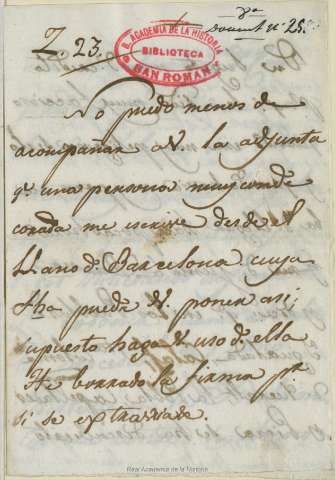 Z. 23.
R. ACADEMIA DE LA HISTORIA
BIBLIOTECA
SAN ROMAN
No puedo menos de
acompañar a V. la adjunta
q.e una persona muy conde
corada me escrive desde el
Llano d. Barcelona cuya
fha puede V. poner asi;
supuesto haga V. uso d. ella
He borrado la firma p.r
si se extraviase.
Real Academia de la Historia